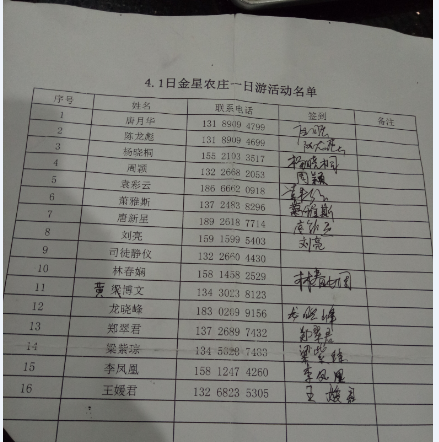 4.1日金星农庄一日游活动名单
序号 姓名 联系电话 签到 备注
1 唐月华 131 8909 4799
2 陈龙彪 131 8909 4699
3 杨晓桐 155 2103 3517 杨晓桐
4 周颖 132 2668 2053 周颖
5 袁彩云 186 6602 0918
6 萧雅斯 137 2483 8296 萧雅斯
7 唐新星 189 2618 7714
8 刘亮 159 1599 5403 刘亮
9 司徒静仪 132 2660 4430
10 林春娴 158 1458 2529
11 黄 博文 134 3023 8123
12 龙晓峰 183 0209 9156 龙晓峰
13 郑翠君 137 2689 7432 郑翠君
14 梁紫琮 134 7433 梁紫琮
15 李凤凰 158 1247 4260 李凤凰
16 王嫒君 132 6823 5305 王嫒君